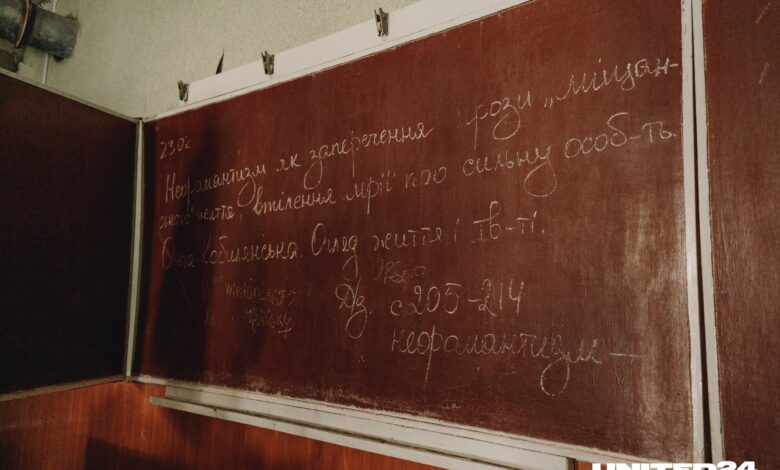 Неоромантизм як заперечення прози „міщан-
ського" життя, втілення мрії про сильну особ-ть.
Ольга Кобилянська. Огляд життя і тв-ті.
Дз. с 205-214
неоромантизм —
UNITED24